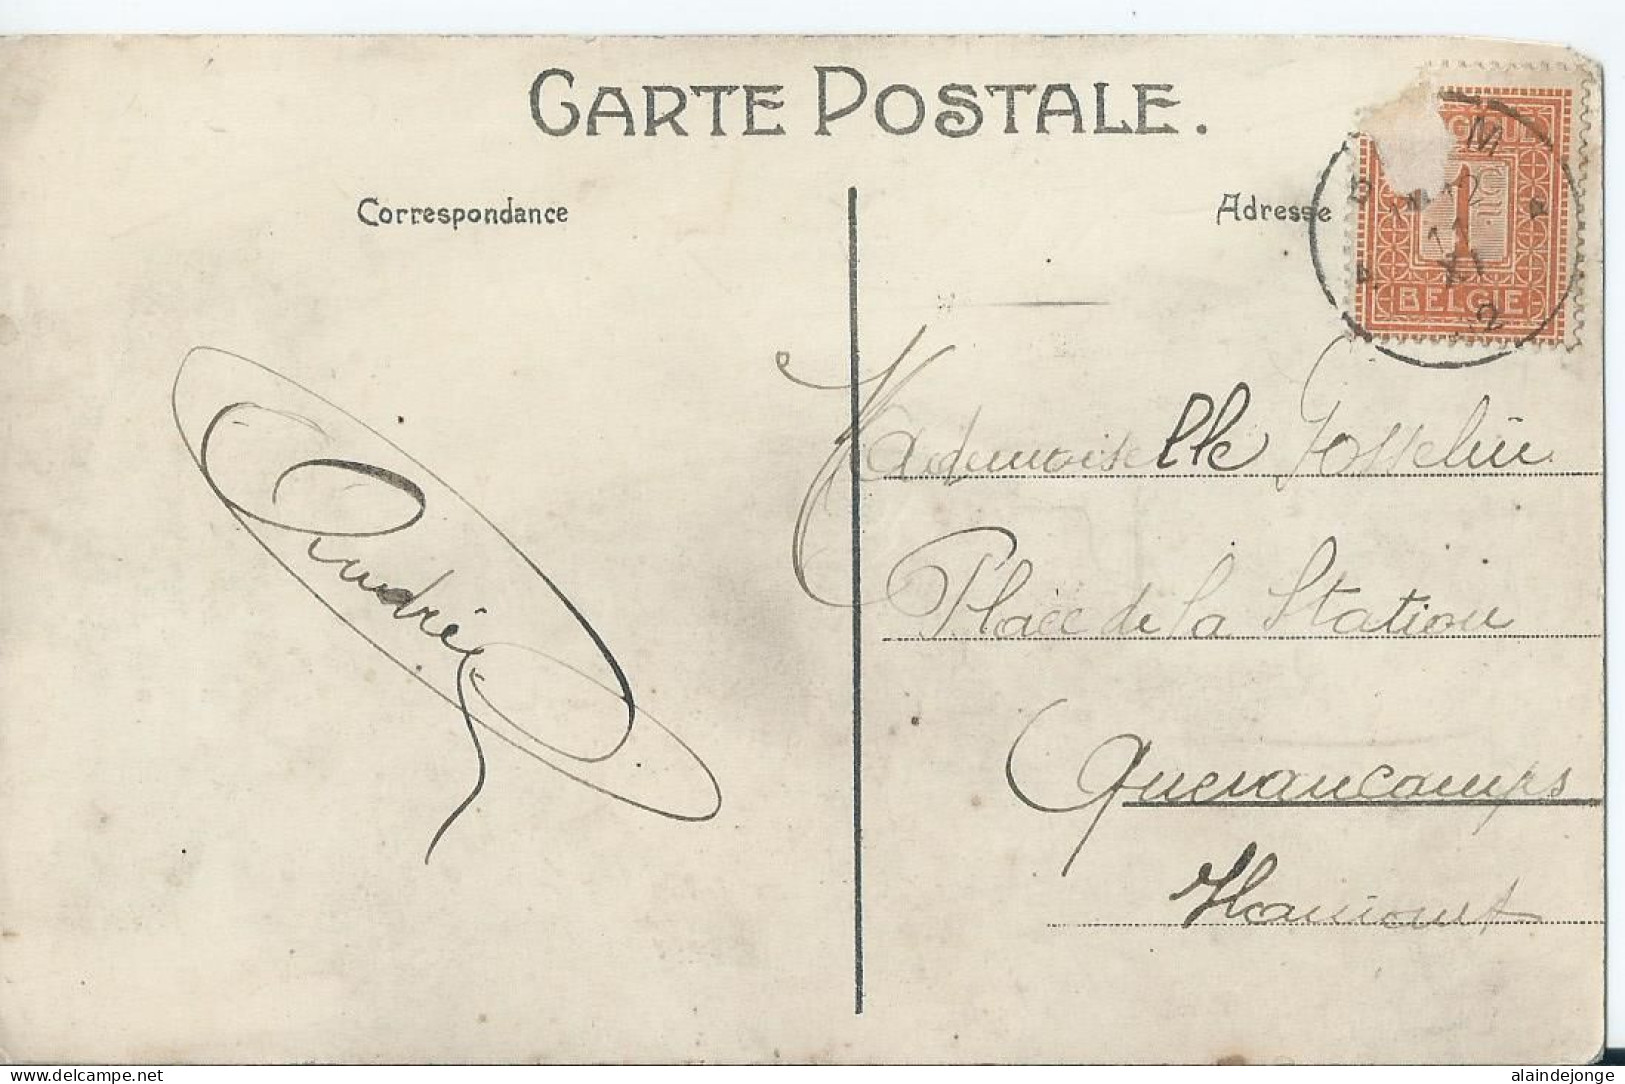 CARTE POSTALE.
Correspondance
Adresse
BELGIE
1
M
12
11
XI
12
Mademoiselle Gosselin
Place de la Station
Quevaucamps
Hainaut
Andrée
delcampe.net
alaindejonge